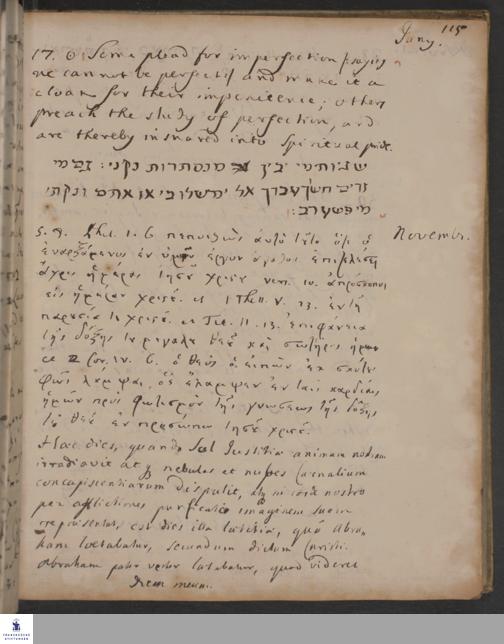 115
Jany.
17. 6. Some plead for imperfection saying
we cannot be perfect if and make it a
cloak for their impenitence; others
preach the study of perfection, and
are thereby insnared into Spiritual pride.
שגיאות מי יבין מנסתרות נקני: גם מ
זדים חשך עבדך אל ימשלו בי אז איתם ונקתי
מפשע רב:
5. Phil. 1. 6 πεποιθως αυτο τουτο οτι ο Novembr.
εναρξαμενος εν υμιν εργον αγαθον επιτελεση
αχρις ημερας Ιησου χριστου vers. 10. απροσκοποι
εις ημεραν χριστου. et 1 Thess. V. 23. εν τη
παρουσια του χριστου. et Tit. 11. 13. επιφανεια
της δοξης του μεγαλου θεου και σωτηρος ημων
et 2 Cor. IV. 6. ο θεος ο ειπων εκ σκοτους
φως λαμψαι, ος ελαμψεν εν ταις καρδιαις
ημων προς φωτισμον της γνωσεως της δοξης
του θεου εν προσωπω Ιησου χριστου.
Haec dies, quando Sol Justitiae animam nostram
irradiavit atq nebulas et nubes Carnalium
concupiscentiarum dispulit, atq in corde nostro
per afflictiones purificato imaginem suam
repraesentat, est dies illa laetitiae, quâ Abra-
ham laetabatur, secundum dictum Christi.
Abraham pater vester laetabatur, quod videret
diem meum.